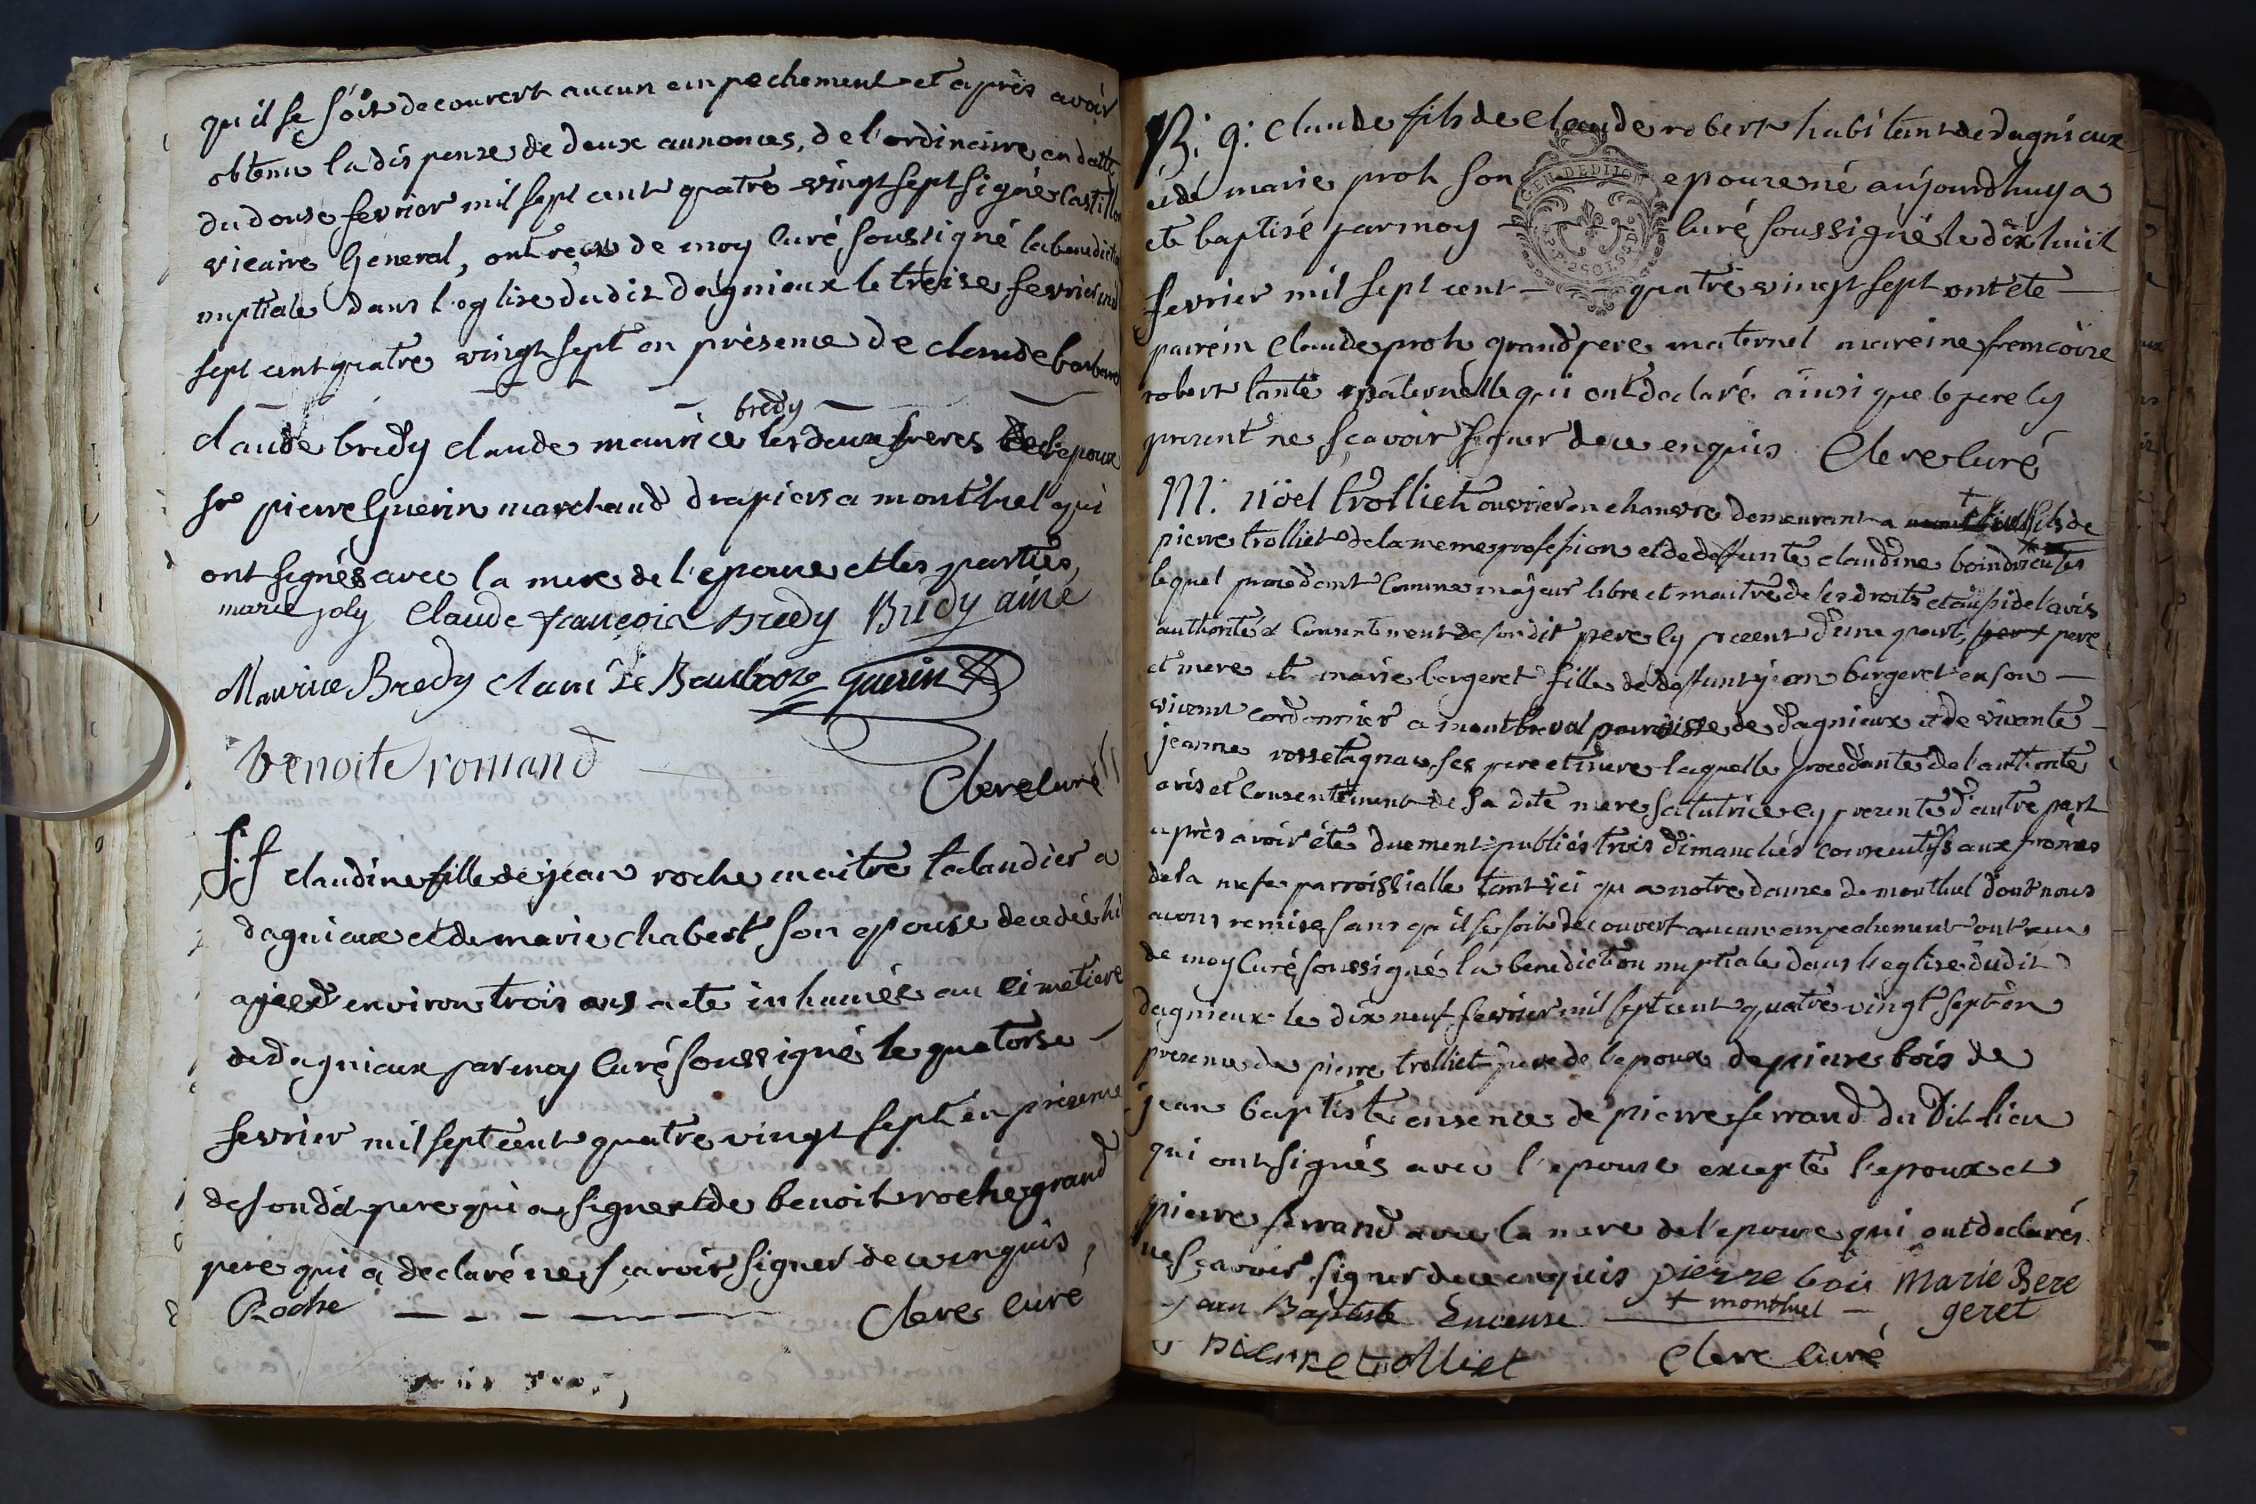 qu'il se soit decouvert aucun empechement et après avoir
obtenu la dispense de deux annonces, de l'ordinaire en datte
du douse fevrier mil sept cent quatre vingt sept signé Castillon
vicaire General, ont reçu de moy Curé soussigné la benediction
nuptiale dans l'eglise dudit dagnieux le treise fevrier mil
sept cent quatre vingt sept en présence de claude barbaro
bredy
claude bredy claude maurice les deux freres de l'epoux
sr pierre Guerin marchand drapier a montluel qui
ont signés avec la mere de l'epouse et les parties,
marie joly Claude françois Bredy Bredy ainé
Maurice Bredy claude Barbaro Guerin
benoite romand
Clere curé
S: f claudine fille de jean roche maitre taclandier a
dagnieux et de marie chabert son epouse decedée hi
agée d'environ trois ans a ete inhumée au cimetiere
de dagnieux par moy Curé soussigné le quatorse
fevrier mil sept cent quatre vingt sept en présence
de son dit pere qui a signé et de benoit roche grand
pere qui a declaré ne sçavoir signer de ce enquis,
Roche Clere curé
B: g: Claude fils de claude robert habitant de dagnieux
et de marie proh son epouse né aujourdhuy a
GEN. DE DIJON
2 SOLS
ete baptisé par moy curé soussigné le dix huit
fevrier mil sept cent quatre vingt sept ont ete
parein Claude proh grand pere maternel mareine francoise
robert tante paternelle qui ont declaré ainsi que le pere icy
present ne sçavoir signer de ce enquis Clere curé
M: nöel trolliet ouvrier en chanvre demeurant a + fils de
pierre trolliet de la meme profession et de defunte claudine
lequel procedant comme majeur libre et maitre de ses droits et aussi de l'avis
authorité et consentement de son dit pere icy present d'une part, pere
et mere et marie bergeret fille de defunt jean bergeret en son
vivant cordonnier a montbreval parroisse de dagnieux et de vivante
jeanne rossetagnau, ses pere et mere laquelle procedante de l'authorité
avis et consentement de sa dite mere sa tutrice icy presente d'autre part
après avoir été duement publiés trois dimanches consecutifs aux prônes
de la messe parroissialle tant ici qu'a notre dame de montluel dont nous
avons remise sans qu'il se soit decouvert aucun empechement ont reçu
de moy Curé soussigné la benediction nuptiale dans l'eglise dudit
dagnieux le dix neuf fevrier mil sept cent quatre vingt sept en
presence de pierre trolliet pere de l'epoux de pierre bois de
jean baptiste ensence de pierre ferrand du dit lieu
qui ont signés avec l'epouse excepté l'epoux et
pierre ferrand avec la mere de l'epouse qui ont declarés
ne sçavoir signer de ce enquis pierre bois Marie Bere
geret
jean Baptiste Encense + montluel
pierre trolliet Clere curé